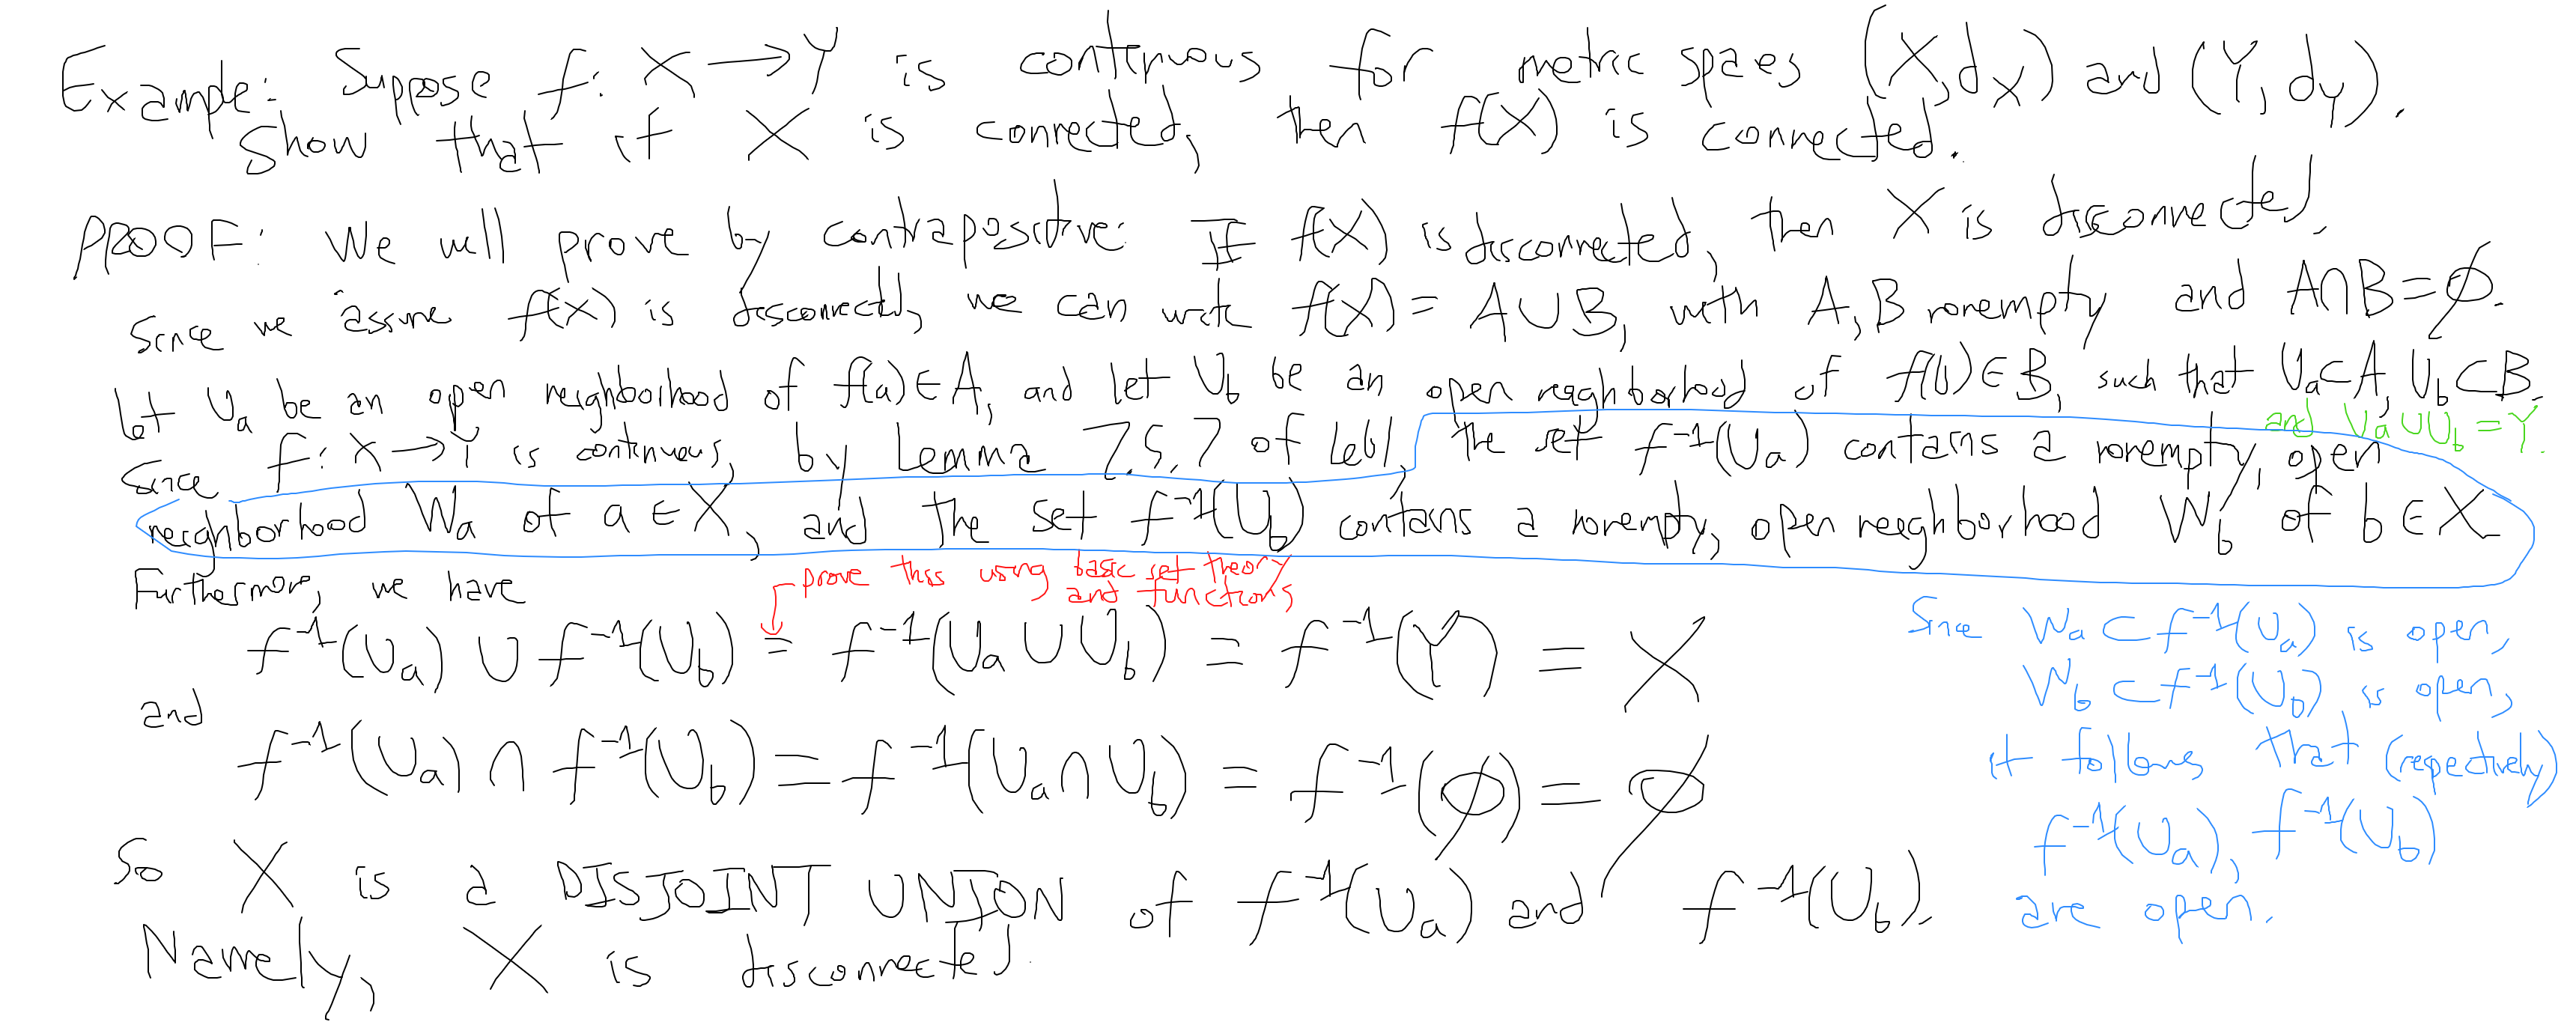 Example: Suppose f: X → Y is continuous for metric spaces (X, d_X) and (Y, d_Y).
Show that if X is connected, then f(X) is connected.
PROOF: We will prove by contrapositive: If f(X) is disconnected, then X is disconnected.
Since we assume f(X) is disconnected, we can write f(X) = A ∪ B, with A, B nonempty and A ∩ B = ∅.
Let U_a be an open neighborhood of f(a) ∈ A, and let U_b be an open neighborhood of f(b) ∈ B, such that U_a ⊂ A, U_b ⊂ B.
and U_a ∪ U_b = Y.
Since f: X → Y is continuous, by Lemma 7.5.7 of Lebl, the set f⁻¹(U_a) contains a nonempty, open
neighborhood W_a of a ∈ X, and the set f⁻¹(U_b) contains a nonempty, open neighborhood W_b of b ∈ X
Furthermore, we have
prove this using basic set theory
and functions
f⁻¹(U_a) ∪ f⁻¹(U_b) = f⁻¹(U_a ∪ U_b) = f⁻¹(Y) = X
and
f⁻¹(U_a) ∩ f⁻¹(U_b) = f⁻¹(U_a ∩ U_b) = f⁻¹(∅) = ∅
So X is a DISJOINT UNION of f⁻¹(U_a) and f⁻¹(U_b).
Namely, X is disconnected.
Since W_a ⊂ f⁻¹(U_a) is open,
W_b ⊂ f⁻¹(U_b) is open,
it follows that (respectively)
f⁻¹(U_a), f⁻¹(U_b)
are open.